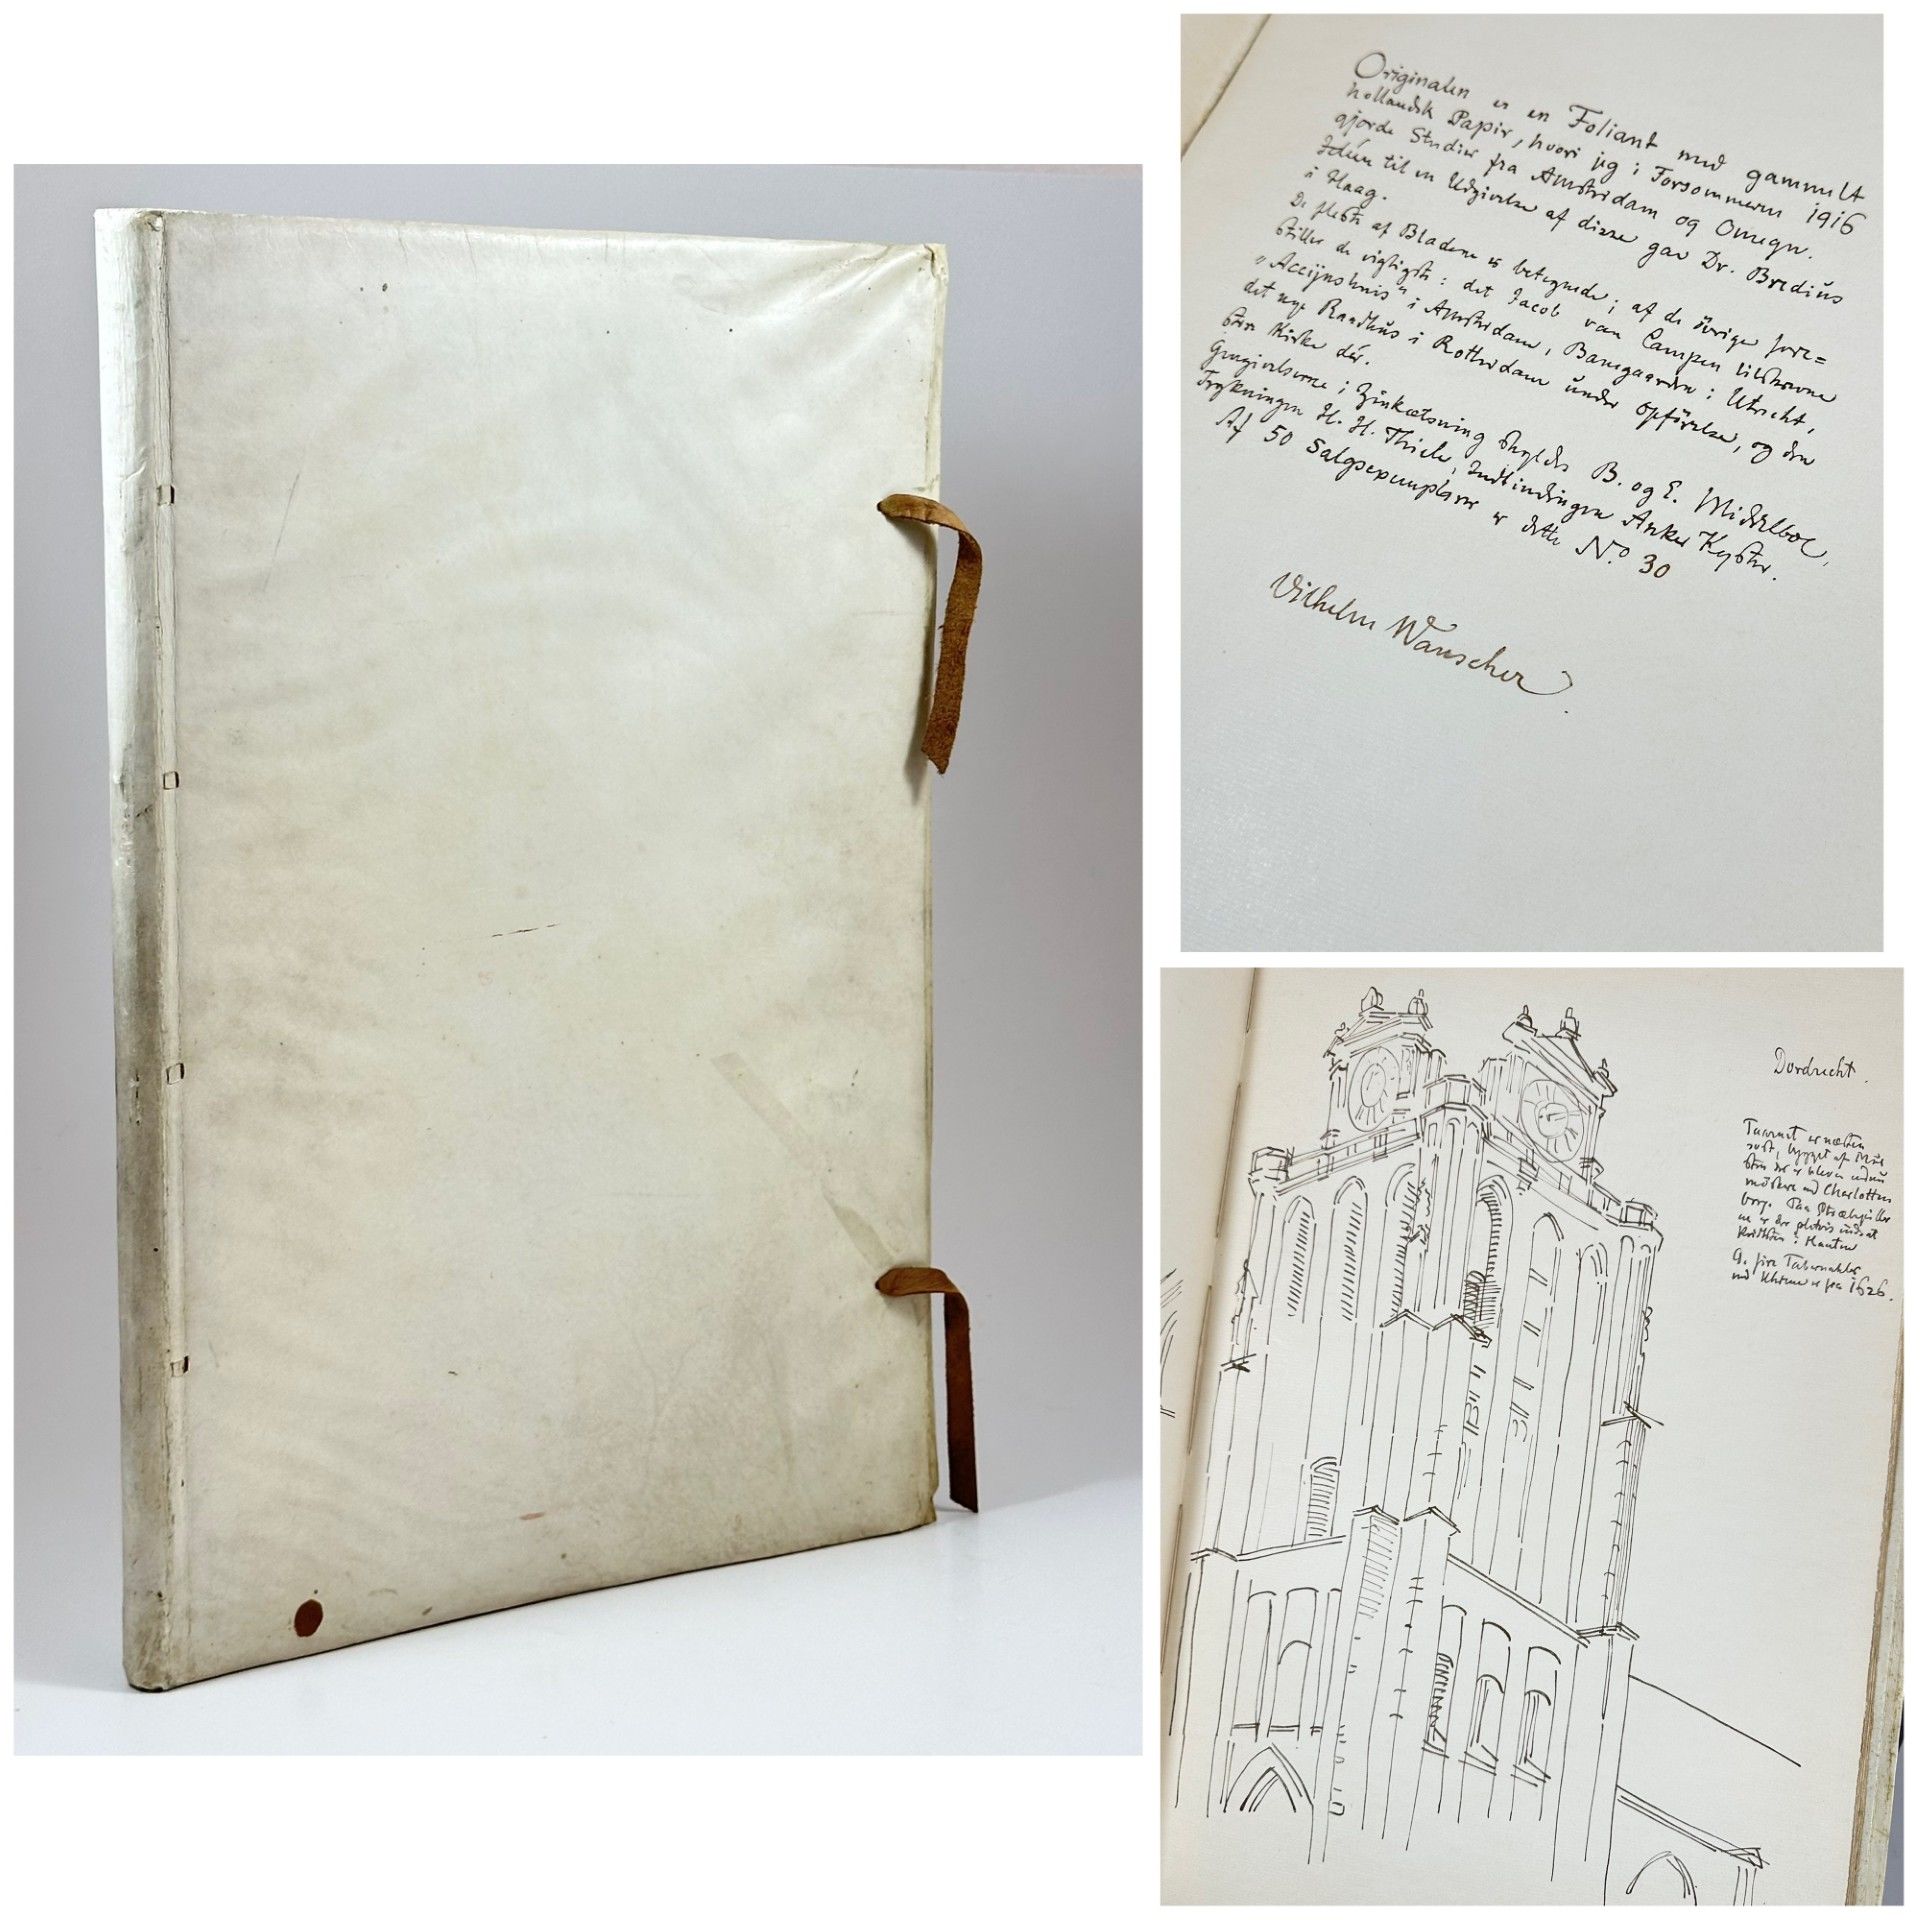 Originalen er en Foliant med gammelt
hollandsk Papir, hvori jeg i Forsommeren 1916
gjorde Studier fra Amsterdam og Omegn.
Idéen til en Udgivelse af disse gav Dr. Bredius
i Haag.
De fleste af Bladene er betegnede; af de övrige fore=
stiller de vigtigste: det Jacob van Campen tilskrevne
"Accijnshuis" i Amsterdam, Banegaarden i Utrecht,
det nye Raadhus i Rotterdam under opförelse, og den
store Kirke dér.
Gengivelserne i Zinkætsning skyldes B. og E. Middelboe,
Trykningen H. H. Thiele, Indbindingen Anker Kyster.
Af 50 Salgsexemplarer er dette No. 30
Vilhelm Wanscher
Dordrecht.
Taarnet er næsten
sort, bygget af Mur
sten der er bleven endnu
mørkere end Charlotten
borg. Paa
ne er der
i Kanten
fire Tabernakler
med Uhrene er fra 1626.